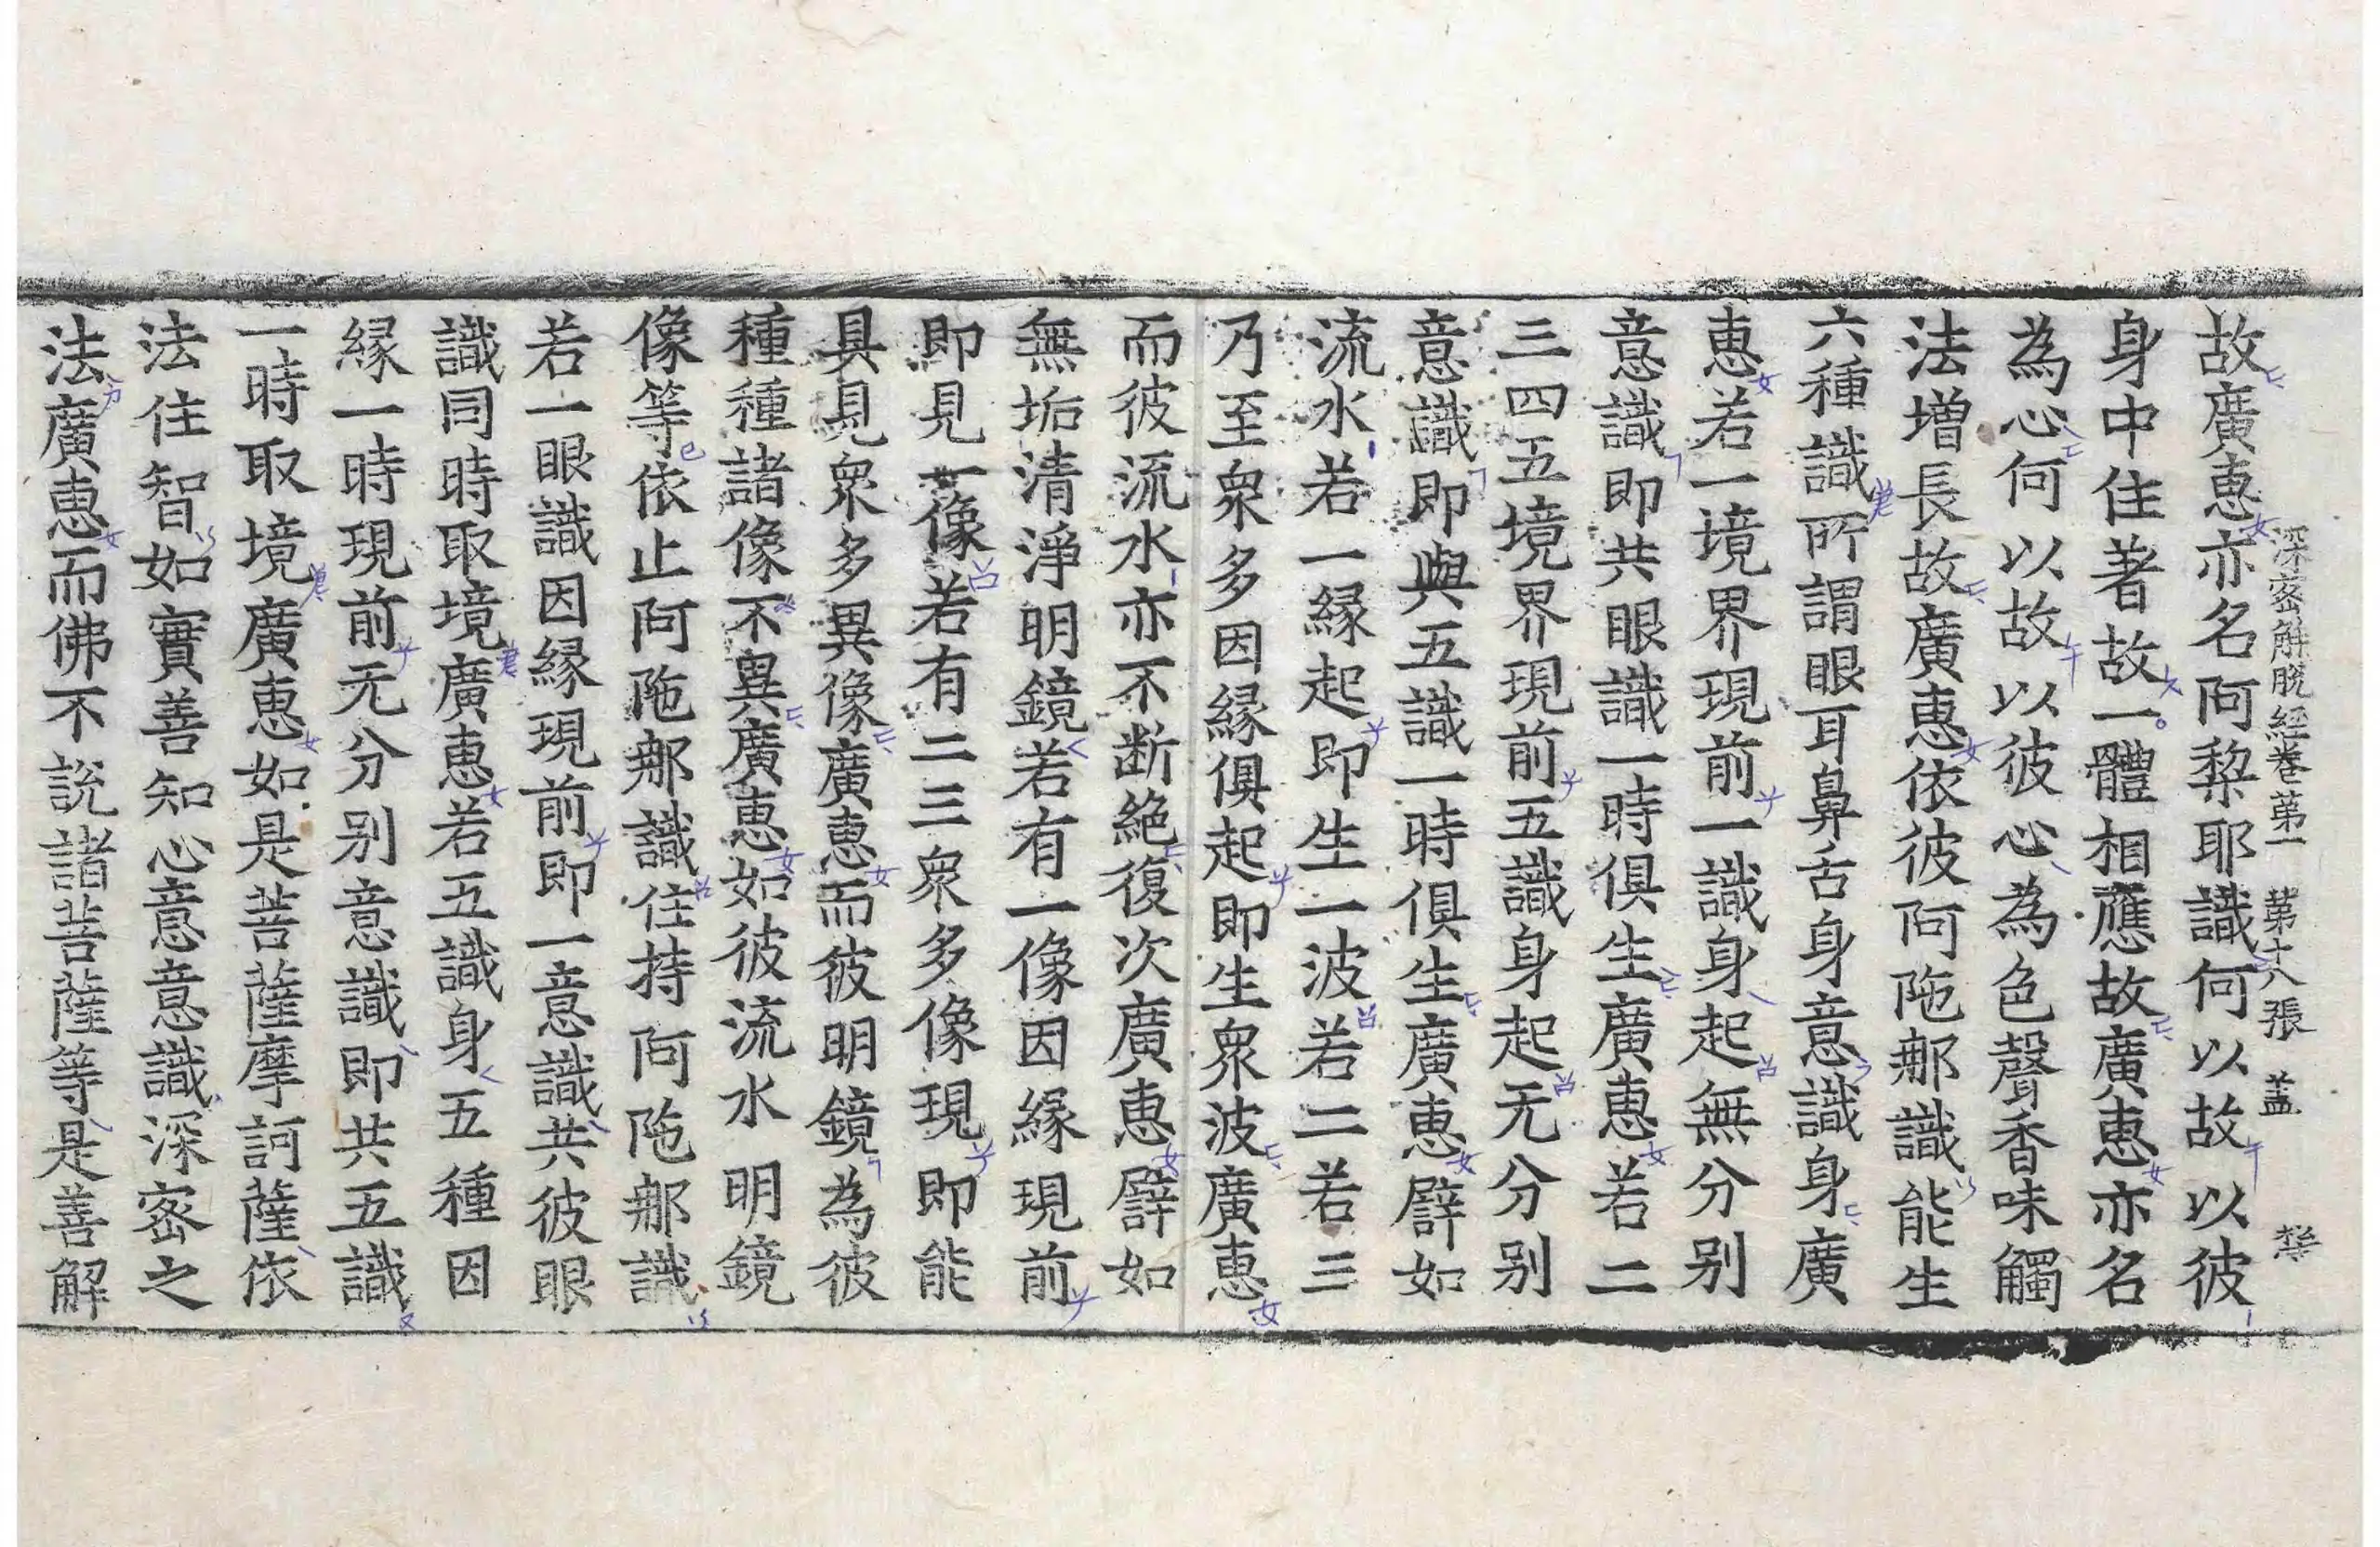 深密解脫經卷第一 第十八張 盖
故廣惠亦名阿棃耶識何以故以彼
身中住著故一體相應故廣惠亦名
為心何以故以彼心為色聲香味觸
法增長故廣惠依彼阿陁郍識能生
六種識所謂眼耳鼻舌身意識身廣
惠若一境界現前一識身起無分别
意識即共眼識一時俱生廣惠若二
三四五境界現前五識身起无分别
意識即與五識一時俱生廣惠譬如
流水若一緣起即生一波若二若三
乃至衆多因緣俱起即生衆波廣惠
而彼流水亦不断絶復次廣惠譬如
無垢清淨明鏡若有一像因緣現前
即見一像若有二三衆多像現即能
具見衆多異像廣惠而彼明鏡為彼
種種諸像不異廣惠如彼流水明鏡
像等依止阿陁郍識住持阿陁郍識
若一眼識因緣現前即一意識共彼眼
識同時取境廣惠若五識身五種因
緣一時現前无分别意識即共五識
一時取境廣惠如是菩薩摩訶薩依
法住智如實善知心意意識深密之
法廣惠而佛不説諸菩薩等是善解